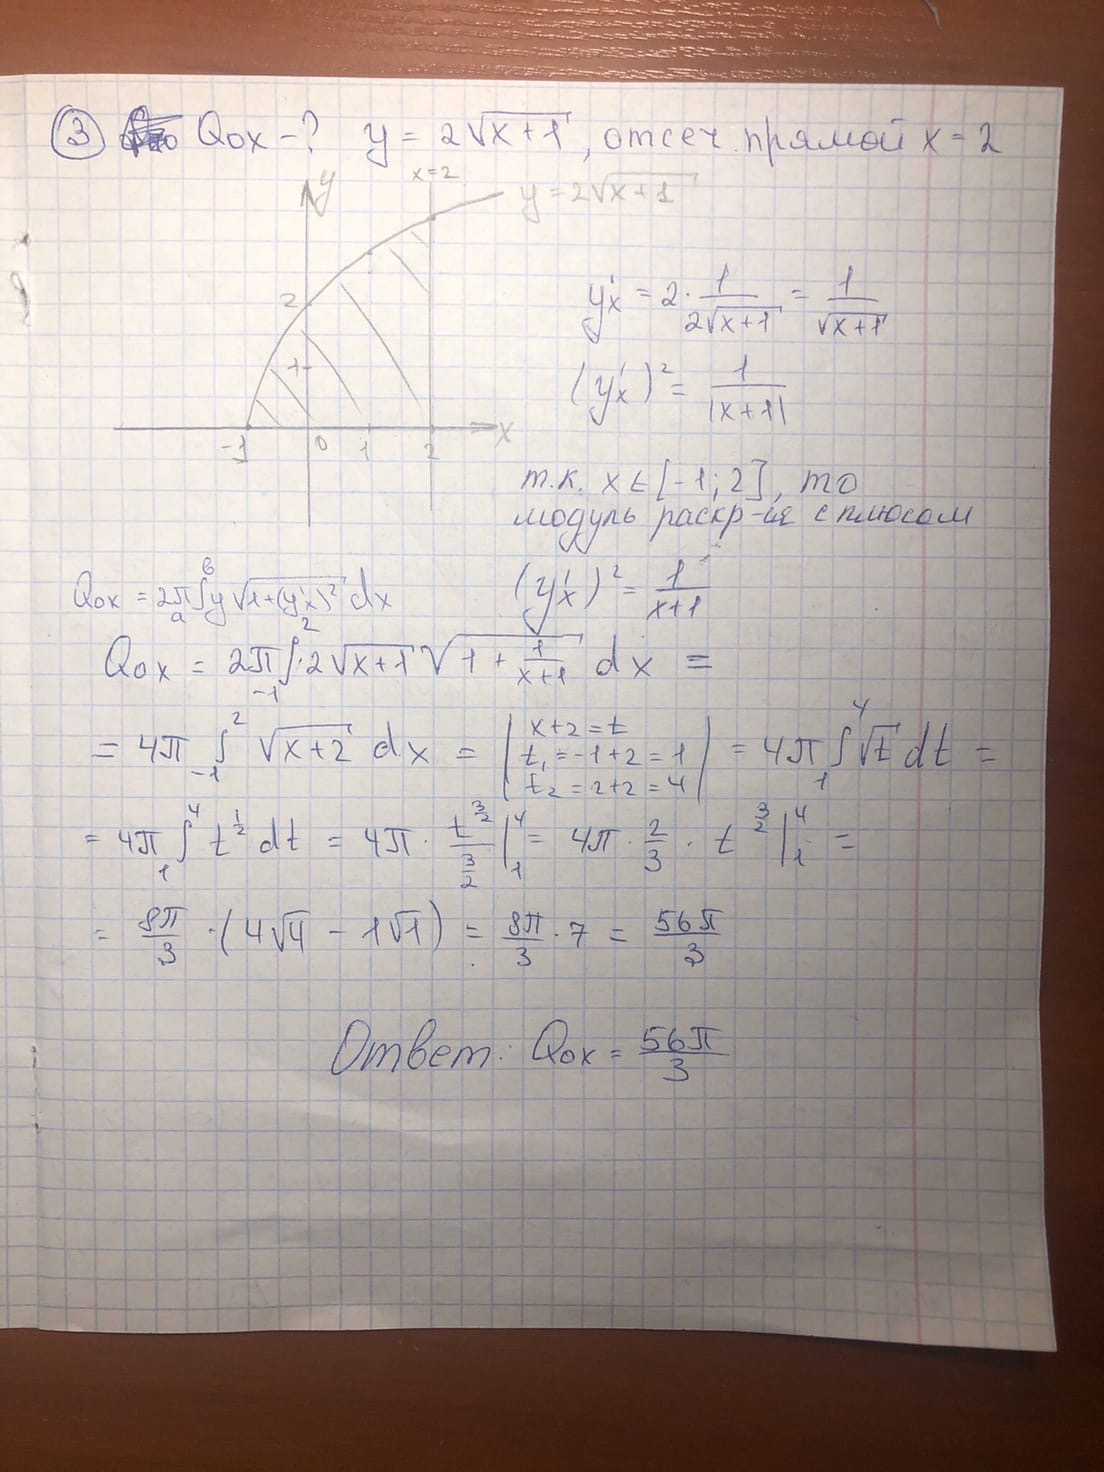 ③ Qox - ? y = 2√(x+1), отсеч. прямой x = 2
y
x=2
y = 2√(x+1)
2
1
-1 0 1 2 x
y'x = 2 · 1/(2√(x+1)) = 1/√(x+1)
(y'x)² = 1/|x+1|
т.к. x ∈ [-1; 2], то
модуль раскр-ся с плюсом
(y'x)² = 1/(x+1)
Qox = 2π ∫ₐᵇ y √(1+(y'x)²) dx
Qox = 2π ∫₋₁² · 2√(x+1) √(1 + 1/(x+1)) dx =
= 4π ∫₋₁² √(x+2) dx = | x+2 = t t₁ = -1+2 = 1 t₂ = 2+2 = 4 | = 4π ∫₁⁴ √t dt =
= 4π ∫₁⁴ t^(1/2) dt = 4π · t^(3/2)/(3/2) |₁⁴ = 4π · 2/3 · t^(3/2) |₁⁴ =
= 8π/3 · (4√4 - 1√1) = 8π/3 · 7 = 56π/3
Ответ: Qox = 56π/3